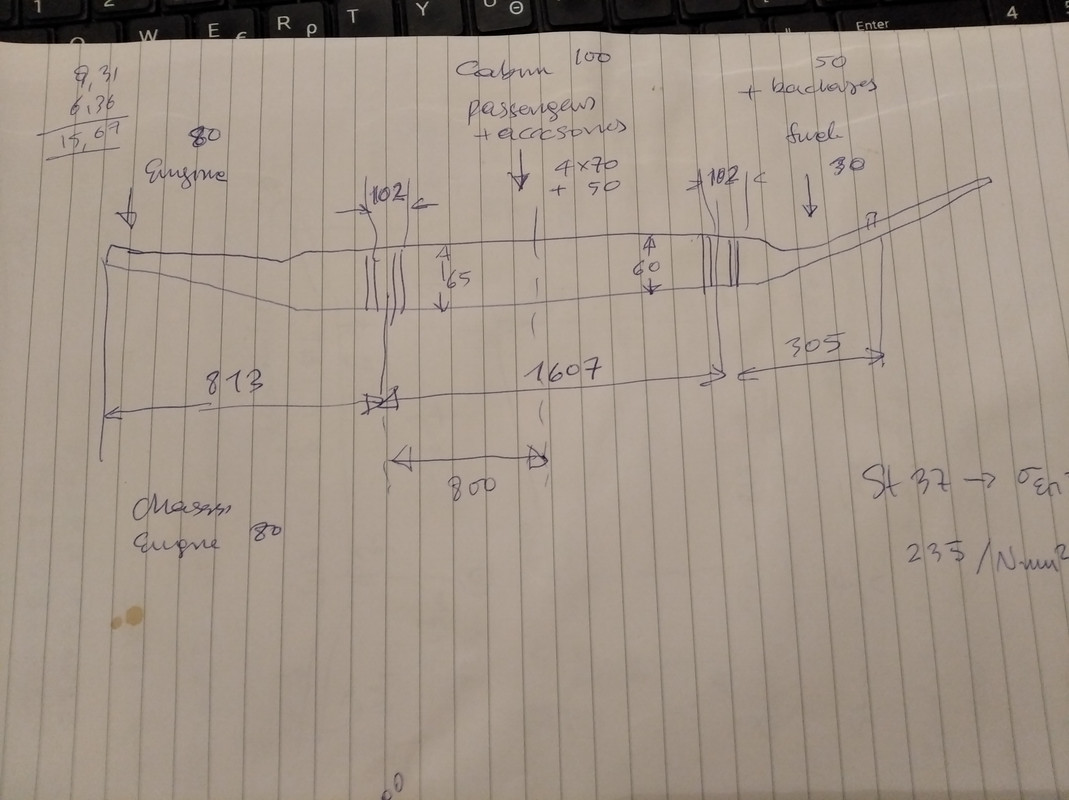 1 2 Q W E € R ρ T Y Θ Enter 4
9,31
6,36
15,67
80
Engine
Cabin 100
passengers
+ accesories
4×70
+ 50
50
+
fuel
30
102
102
65
60
813
1607
305
800
Chassi
Engine 80
St 37 →
235 /N·mm²